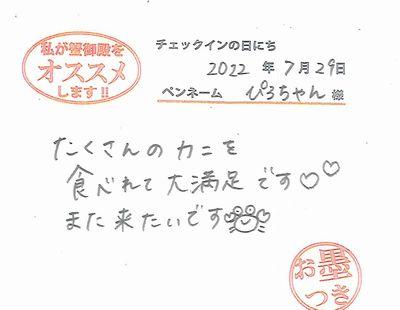 私が蟹御殿を
オススメ
します!!
チェックインの日にち
2022 年 7月 29日
ペンネーム ぴろちゃん 様
たくさんのカニを
食べれて大満足です♡♡
また来たいです
お墨
つき